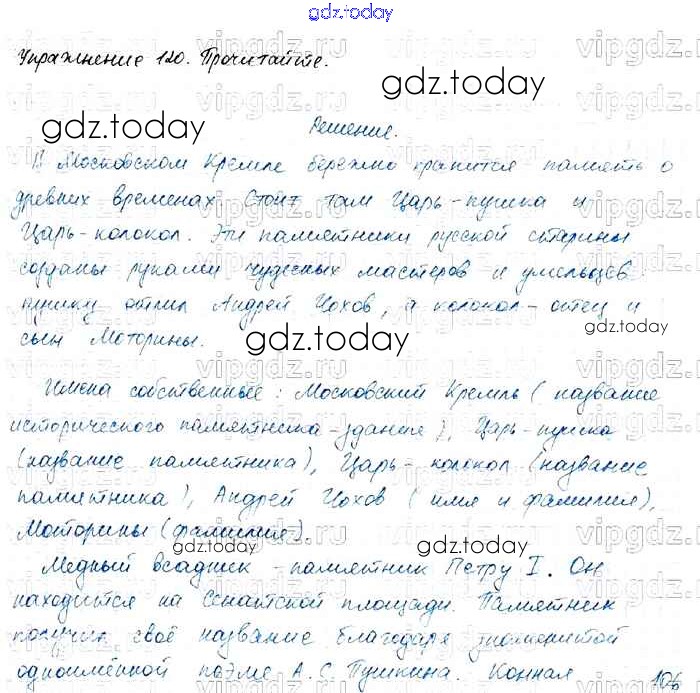 gdz.today
Упражнение 120. Прочитайте.
Решение.
В Московском Кремле бережно хранится память о
древних временах. Стоит там Царь-пушка и
Царь-колокол. Эти памятники русской старины
созданы руками чудесных мастеров и умельцев
пушку отлил Андрей Чохов, а колокол - отец и
сын Моторины.
Имена собственные: Московский Кремль (название
исторического памятника - здание), Царь-пушка
(название памятника), Царь-колокол (название
памятника), Андрей Чохов (имя и фамилия),
Моторины (фамилие).
Медный всадник - памятник Петру I. Он
находится на Сенатской площади. Памятник
получил своё название благодаря знаменитой
одноимённой поэме А.С. Пушкина. Конная
106